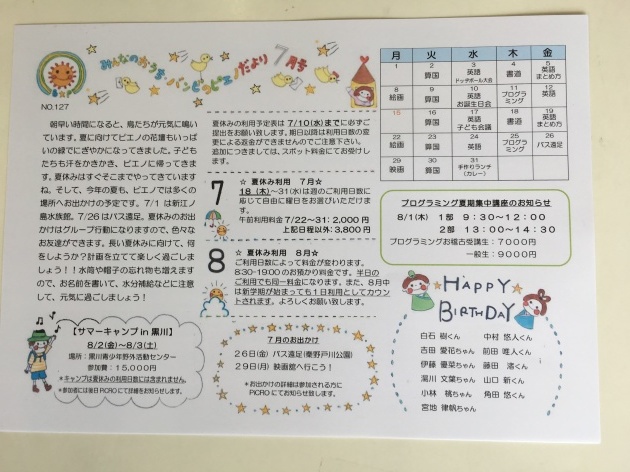 みんなのおうち バンビのピエノだより 7月号
NO.127
朝早い時間になると、鳥たちが元気に鳴い
ています。夏に向けてピエノの花壇もいっぱ
いの緑でにぎやかになってきました。子ども
たちも汗をかきかき、ピエノに帰ってきま
す。夏休みはすぐそこまでやってきています
ね。そして、今年の夏も、ピエノでは多くの
場所へお出かけの予定です。7/1は新江ノ
島水族館。7/26はバス遠足。夏休みのお出
かけはグループ行動になりますので、色々な
お友達ができます。長い夏休みに向けて、何
をしようか?計画を立てて楽しく過ごしま
しょう!!水筒や帽子の忘れ物も増えますの
で、お名前を書いて、水分補給などに注意
して、元気に過ごしましょう!
【サマーキャンプ in 黒川】
8/2(金)~8/3(土)
場所:黒川青少年野外活動センター
参加費:15,000円
*キャンプは夏休みの利用日数には含まれません。
*参加者には後日PiCROにて詳細をお知らせします。
夏休みの利用予定表は 7/10(水)までに必ずご
提出をお願い致します。期日以降は利用日数の変
更による返金ができませんのでご注意下さい。
追加につきましては、スポット料金にてお受けしま
す。
7
☆ 夏休み利用 7月☆
18(木)~31(水)は週のご利用日数に
応じて自由に曜日をお選びいただけま
す。
午前利用料金7/22~31:2,000円
上記日程以外:3,800円
8
☆ 夏休み利用 8月☆
ご利用日数によって料金が変わります。
8:30-19:00のお預かり料金です。半日の
ご利用でも同一料金になります。また、8月中
は新学期が始まっても1日利用としてカウン
トされます。よろしくお願い致します。
7月のお出かけ
26日(金) バス遠足(秦野戸川公園)
29日(月) 映画館へ行こう!
*お出かけの詳細は参加される方に
PiCROにてお知らせ致します。
月 火 水 木 金
1 2 算国 3 英語 ドッヂボール大会 4 書道 5 英語 まとめ方
8 絵画 9 算国 10 英語 お誕生日会 11 プログラミング 12 英語
15 16 算国 17 英語 子ども会議 18 書道 19 英語 まとめ方
22 絵画 23 算国 24 英語 25 プログラミング 26 バス遠足
29 映画 30 算国 31 手作りランチ (カレー)
プログラミング夏期集中講座のお知らせ
8/1(木) 1部 9:30~12:00
2部 13:00~14:30
プログラミングお稽古受講生:7000円
一般生:9000円
HAPPY
BIRTHDAY
白石 樹くん 中村 悠人くん
吉田 愛花ちゃん 前田 唯人くん
伊藤 優菜ちゃん 藤田 渚くん
湯川 文葉ちゃん 山口 新くん
小林 橘ちゃん 角田 悠くん
宮地 律帆ちゃん